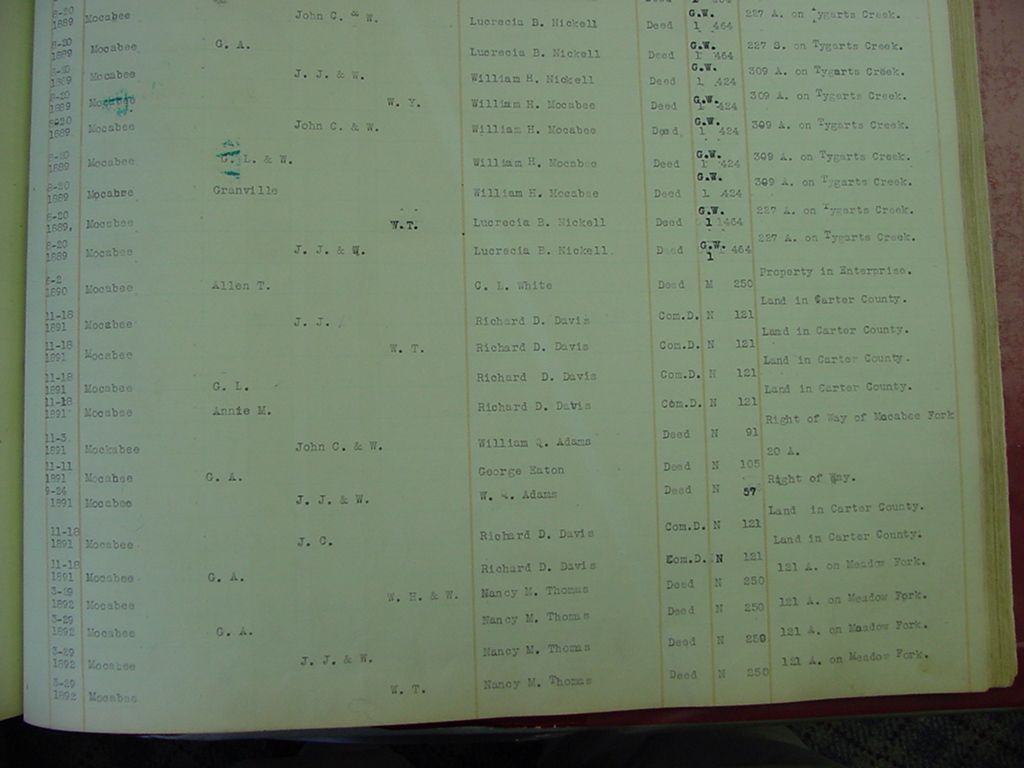 8-20 1889 Mocabee John C. & W. Lucrecia B. Nickell Deed G.W. 1 464 227 A. on Tygarts Creek.
8-20 1889 Mocabee G. A. Lucrecia B. Nickell Deed G.W. 1 464 227 B. on Tygarts Creek.
8-20 1889 Mocabee J. J. & W. William H. Nickell Deed G.W. 1 424 309 A. on Tygarts Creek.
8-20 1889 Mocabee W. Y. William H. Mocabee Deed G.W. 1 424 309 A. on Tygarts Creek.
8-20 1889 Mocabee John C. & W. William H. Mocabee Deed G.W. 1 424 309 A. on Tygarts Creek.
8-20 1889 Mocabee L. & W. William H. Mocabee Deed G.W. 1 424 309 A. on Tygarts Creek.
8-20 1889 Mocabee Granville William H. Mocabee Deed G.W. 1 424 309 A. on Tygarts Creek.
8-20 1889, W.T. Lucrecia B. Nickell Deed G.W. 1 464 227 A. on Tygarts Creek.
8-20 1889 Mocabee J. J. & W. Lucrecia B. Nickell Deed G.W. 1 464 227 A. on Tygarts Creek.
1890 Mocabee Allen T. C. L. White Deed M 250 Property in Enterprise.
11-18 1891 Mocabee J. J. Richard D. Davis Com.D. N 121 Land in Carter County.
11-18 1891 Mocabee W. T. Richard D. Davis Com.D. N 121 Land in Carter County.
11-18 1891 Mocabee G. L. Richard D. Davis Com.D. N 121 Land in Carter County.
11-18 1891 Mocabee Annie M. Richard D. Davis Com.D. N 121 Land in Carter County.
11-3. 1891 Mockabee John C. & W. William Q. Adams Deed N 91 Right of Way of Mocabee Fork
11-11 1891 Mocabee G. A. George Eaton Deed N 105 20 A.
9-24 1891 Mocabee J. J. & W. W. Q. Adams Deed N 57 Right of Way.
11-18 1891 Mocabee J. C. Richard D. Davis Com.D. N 121 Land in Carter County.
11-18 1891 Mocabee G. A. Richard D. Davis Com.D. N 121 Land in Carter County.
3-29 1892 Mocabee W. H. & W. Nancy M. Thomas Deed N 250 121 A. on Meadow Fork.
3-29 1892 Mocabee G. A. Nancy M. Thomas Deed N 250 121 A. on Meadow Fork.
3-29 1892 Mocabee J. J. & W. Nancy M. Thomas Deed N 250 121 A. on Meadow Fork.
3-29 1892 Mocabee W. T. Nancy M. Thomas Deed N 250 121 A. on Meadow Fork.